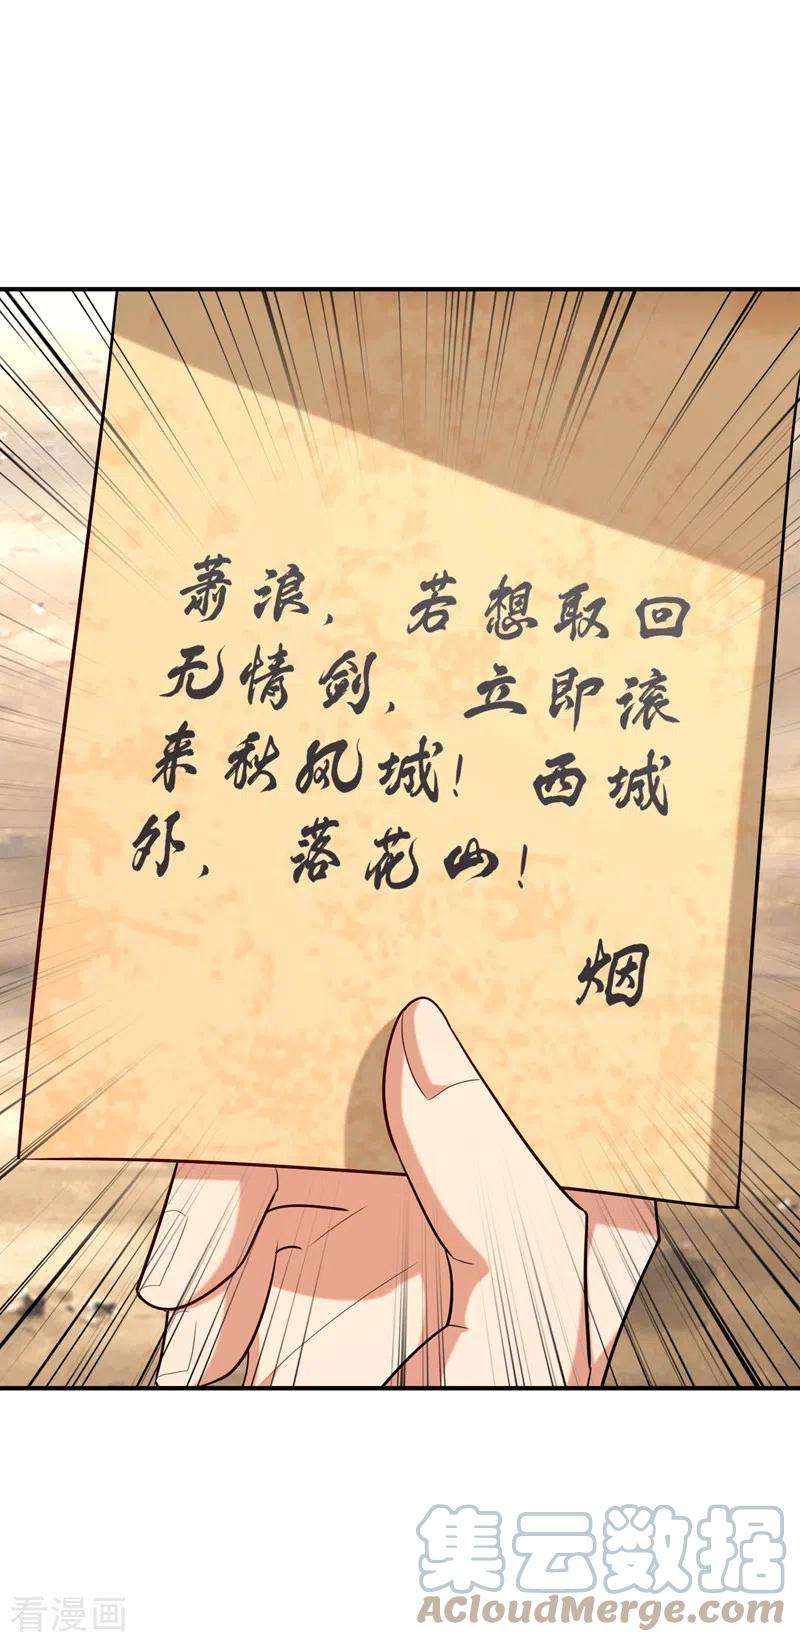 萧浪，若想取回
无情剑，立即滚
来秋风城！西城
外，落花山！
烟
集云数据
看漫画
AcloudMerge.com